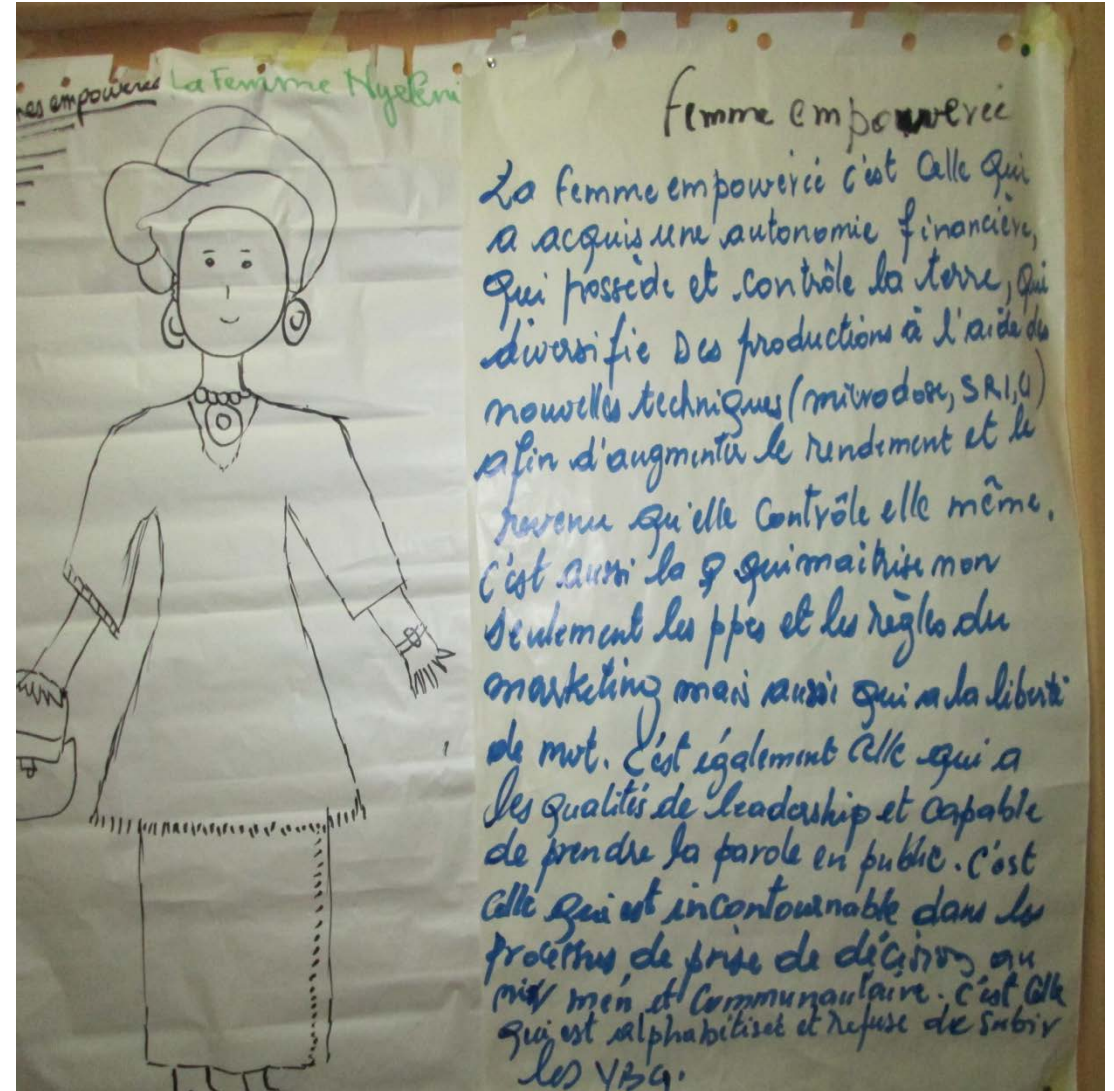 nes empowerees La Femme Nyeleni
femme empowerée
La femme empowerée c'est Celle Qui
a acquis une autonomie financière,
Qui possède et contrôle la terre, Qui
diversifie Des productions à l'aide des
nouvelles techniques (microdose, SRI,
afin d'augmenter le rendement et le
revenu Qu'elle Contrôle elle même.
C'est aussi la ♀ Qui maitrise non
seulement les ppes et les règles du
marketing mais aussi Qui a la liberté
de mot. C'est également Celle qui a
les qualités de leadership et Capable
de prendre la parole en public. C'est
Celle Qui est incontournable dans les
processus de prise de décision au
niv men et Communautaire. C'est Celle
Qui est alphabétisée et refuse de Subir
les VBG.